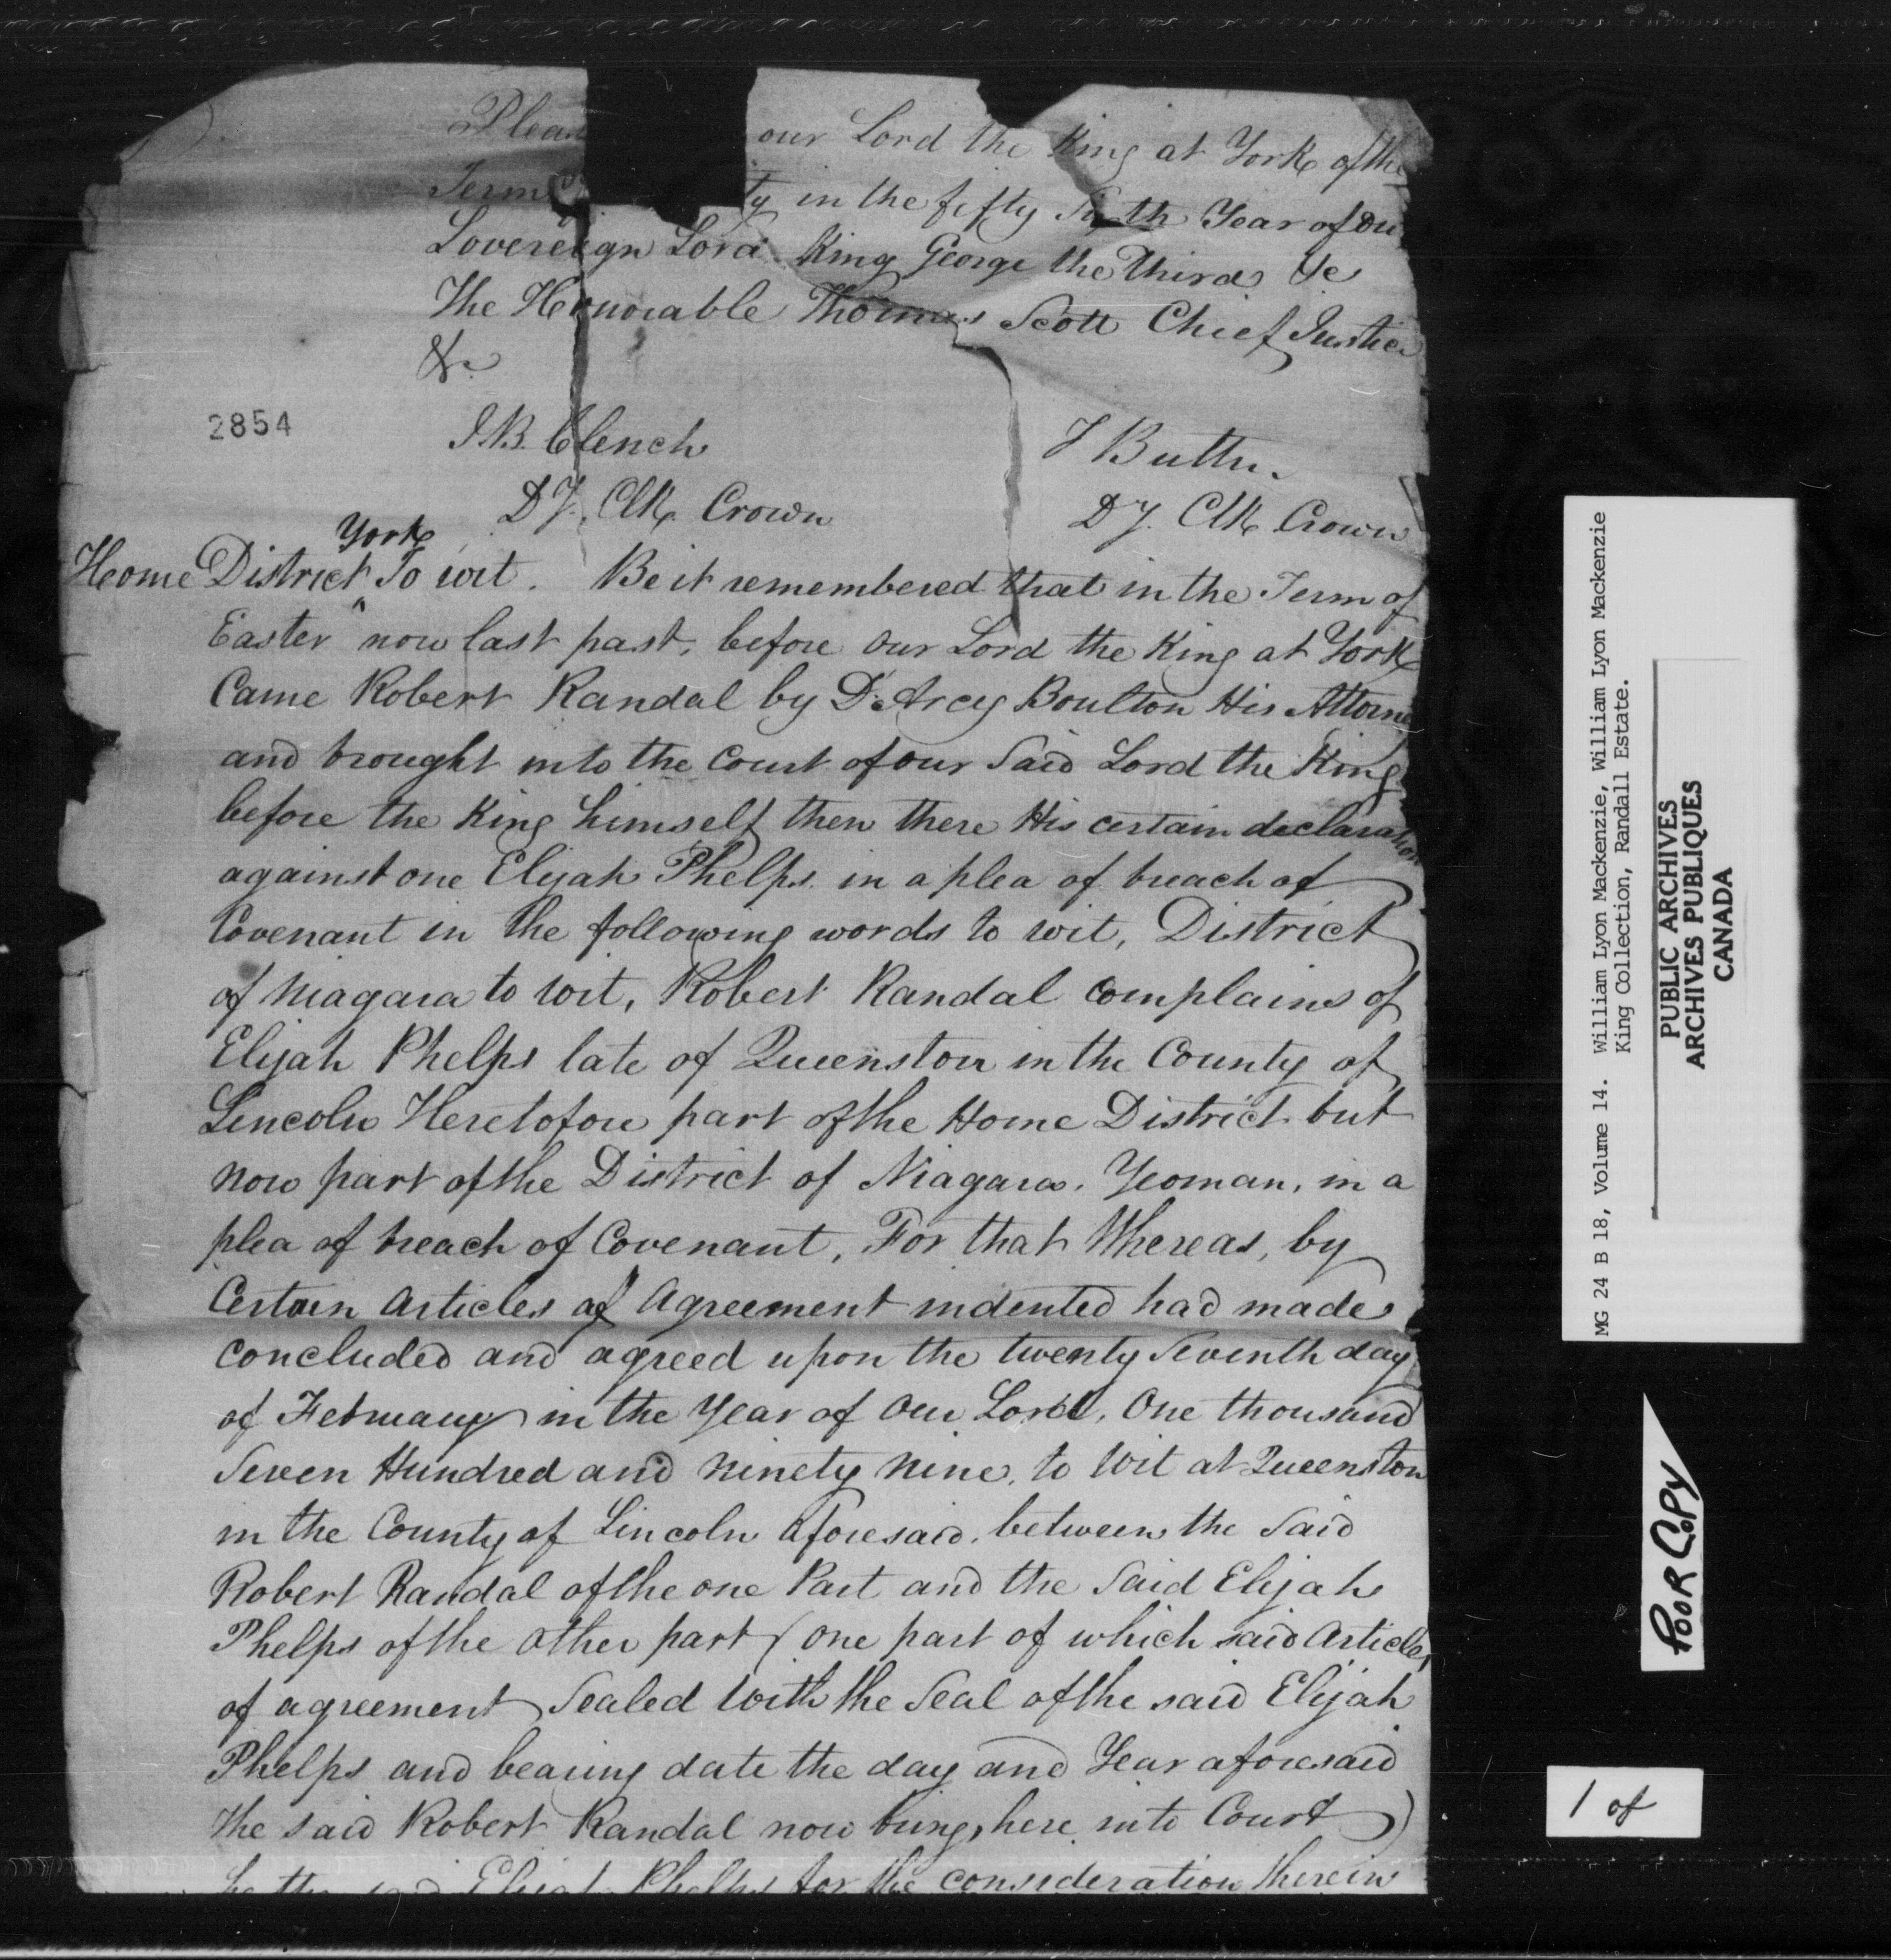 our Lord the King at York of the
Term ty in the fifty Sixth Year of Our
Sovereign Lord King George the Third &c
The Honorable Thomas Scott Chief Justice
&c
2854
J.B. Clench
T Butler
Dy. Clk Crown
Dy. Clk Crown
York
Home District ^ To wit. Be it remembered that in the Term of
Easter now last past, before Our Lord the King at York
Came Robert Randal by D'Arcy Boulton His Attorney
and brought into the Court of our Said Lord the King
before the King himself then there His certain declaration
against one Elijah Phelps in a plea of breach of
Covenant in the following words to wit, District
of Niagara to wit, Robert Randal Complains of
Elijah Phelps late of Queenston in the County of
Lincoln Heretofore part of the Home District but
now part of the District of Niagara, Yeoman, in a
plea of breach of Covenant, For that Whereas, by
Certain Articles of Agreement indented had made
concluded and agreed upon the twenty Seventh day
of February in the Year of Our Lord, One thousand
Seven Hundred and Ninety Nine, to Wit at Queenston
in the County of Lincoln aforesaid, between the Said
Robert Randal of the one Part and the Said Elijah
Phelps of the other part (one part of which said Articles
of agreement Sealed With the Seal of the said Elijah
Phelps and bearing date the day and Year aforesaid
the said Robert Randal now brings here into Court)
Elijah Phelps for the consideration therein
MG 24 B 18, Volume 14. William Lyon Mackenzie, William Lyon Mackenzie
King Collection, Randall Estate.
PUBLIC ARCHIVES
ARCHIVES PUBLIQUES
CANADA
POOR COPY
1 of